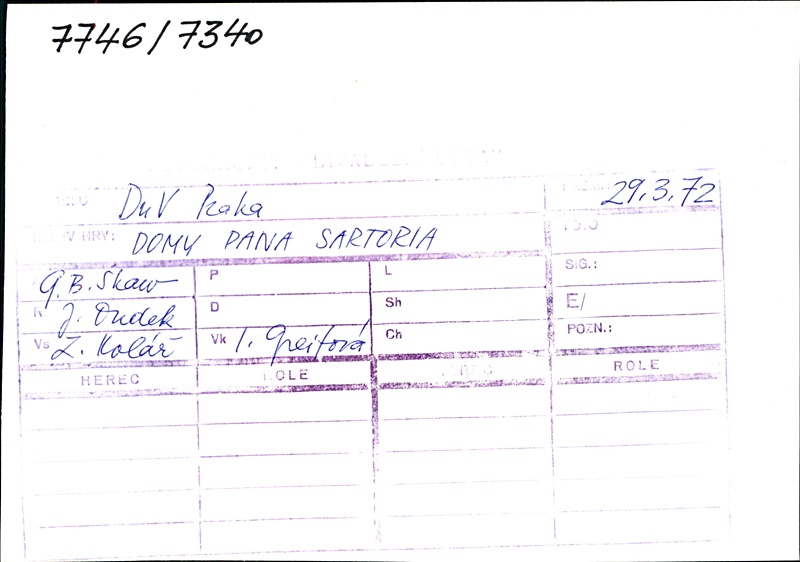 7746/7340
DnV Praha 29.3.72
HRY: DOMY PANA SARTORIA
G.B. Shaw P L SIG.:
R J. Dudek D Sh E/
Vs Z. Kolář Vk I. Greifová Ch POZN.:
HEREC ROLE ROLE